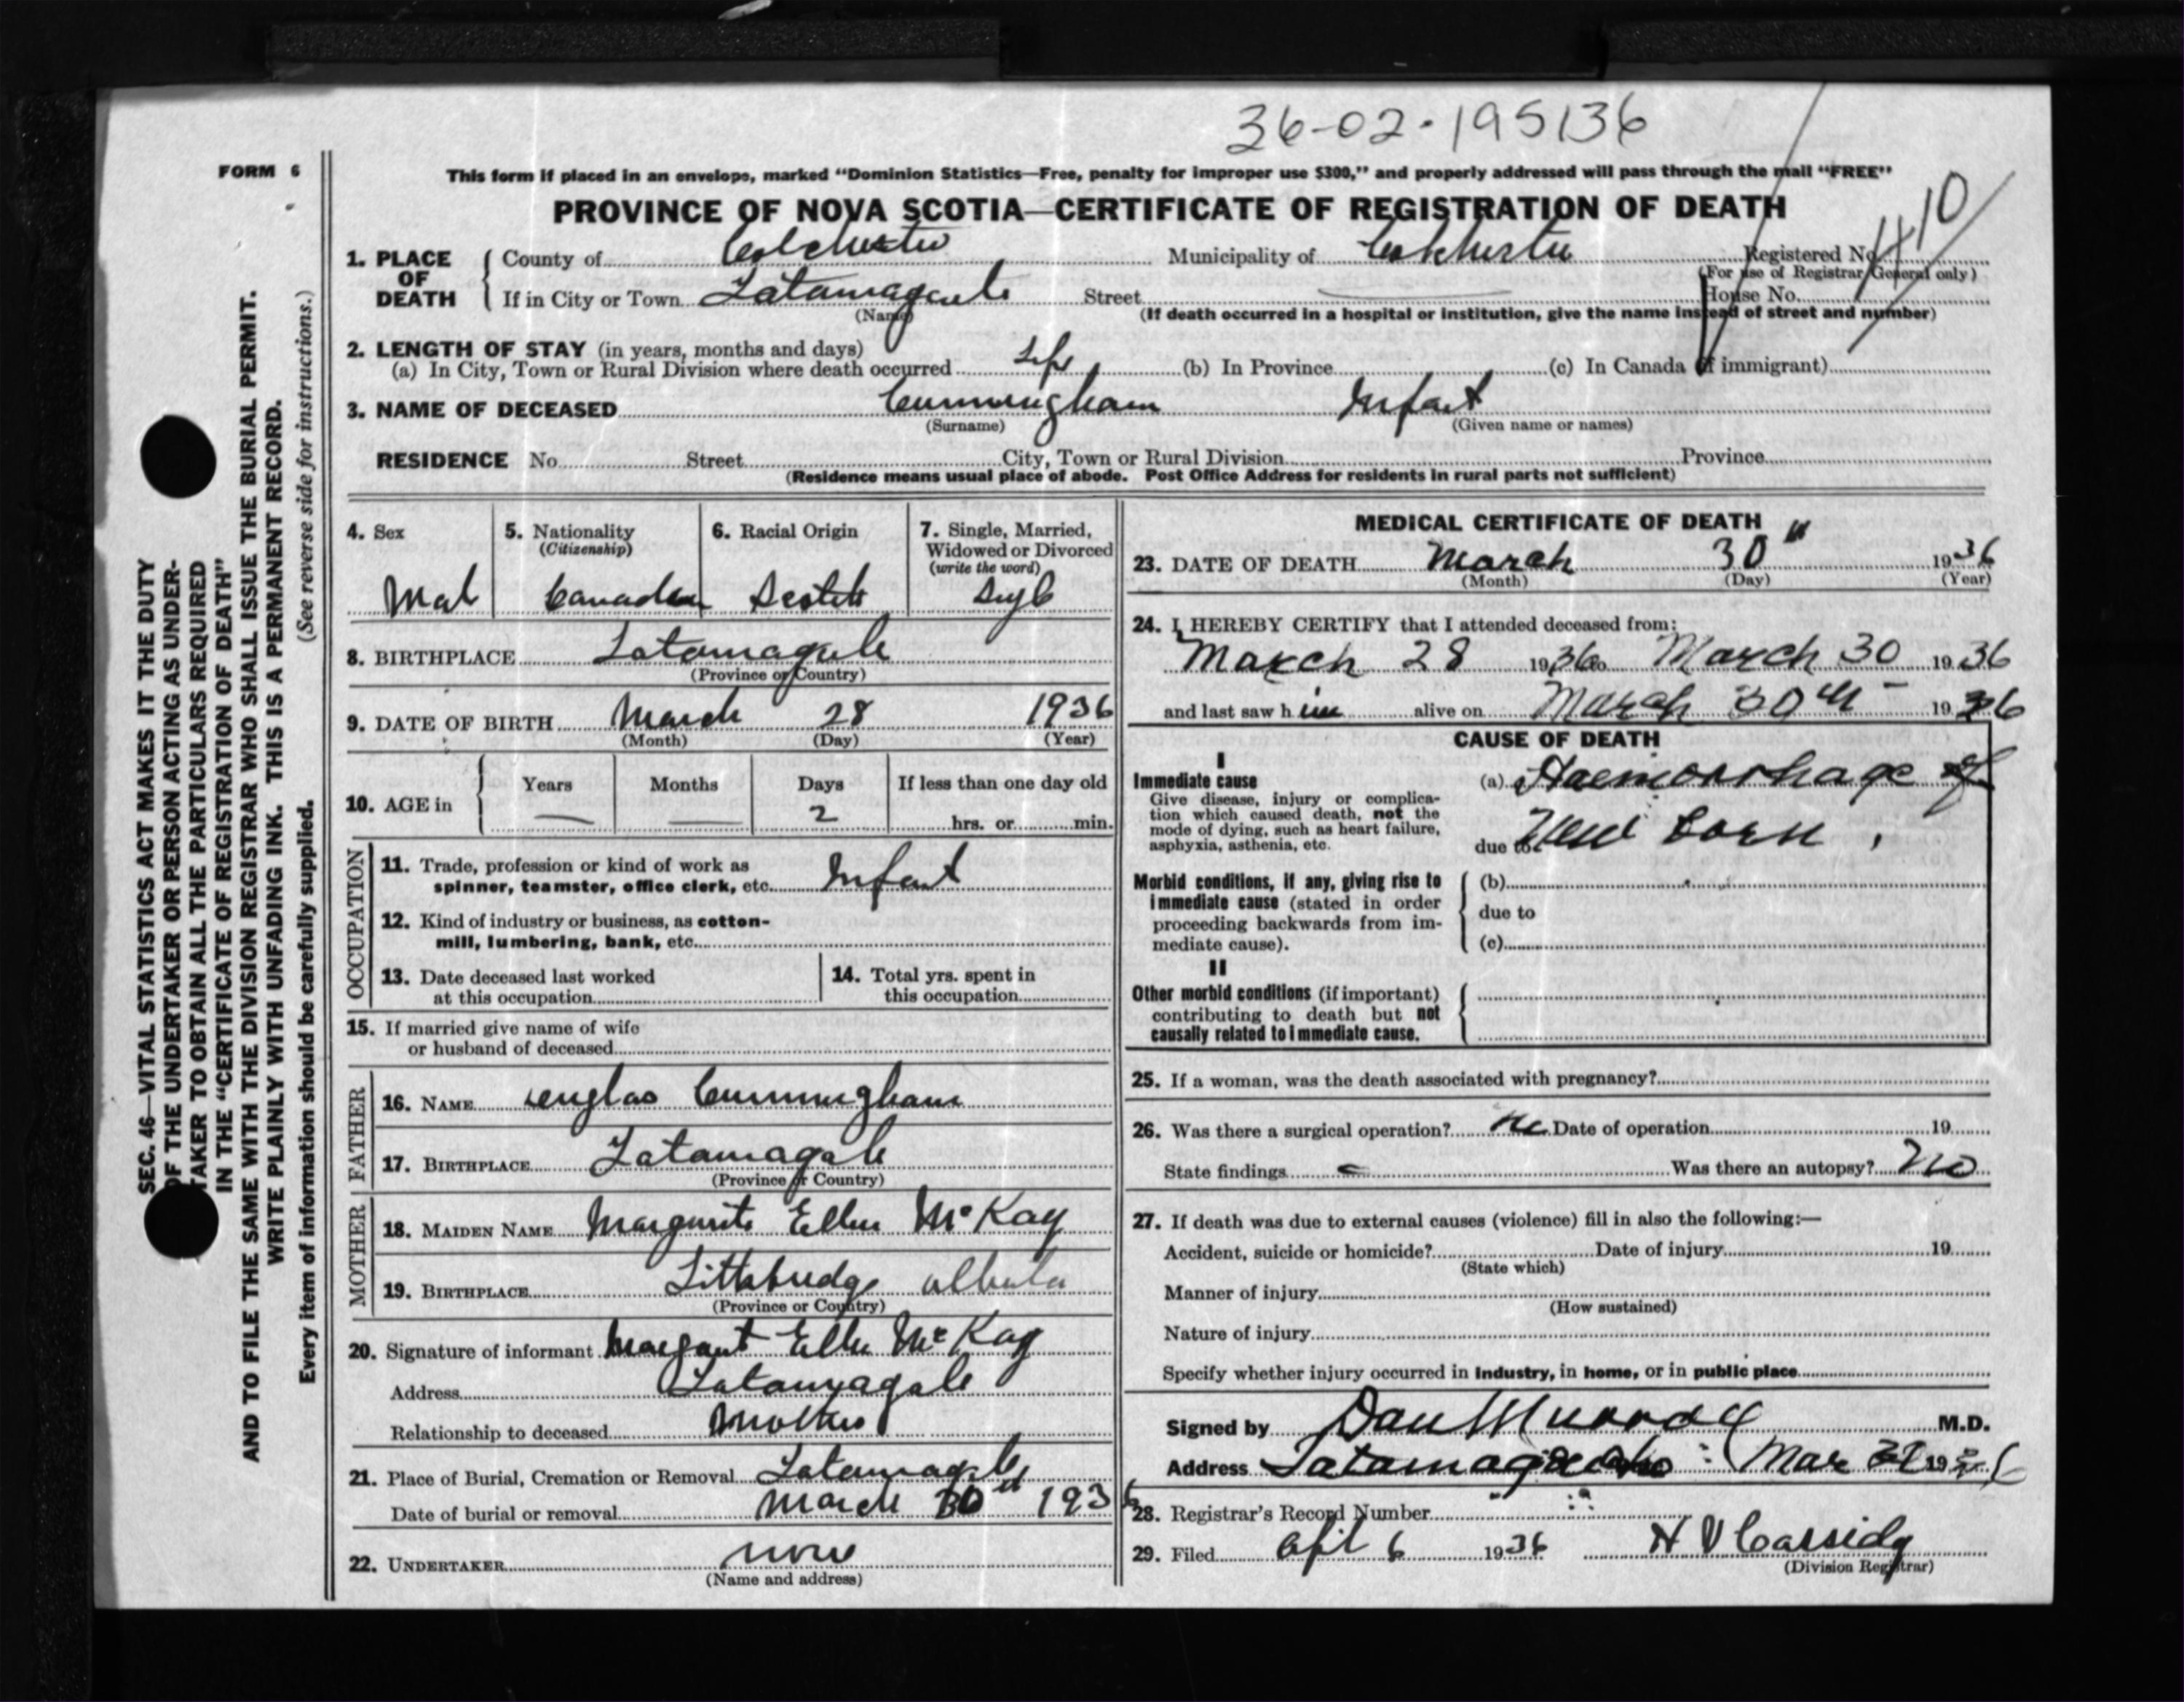 36-02-195136
FORM 6
This form if placed in an envelope, marked “Dominion Statistics—Free, penalty for improper use $300,” and properly addressed will pass through the mail “FREE”
PROVINCE OF NOVA SCOTIA—CERTIFICATE OF REGISTRATION OF DEATH
1. PLACE OF DEATH County of Colchester Municipality of Colchester Registered No.
(For use of Registrar General only)
If in City or Town Tatamagouche Street House No.
(Name) (If death occurred in a hospital or institution, give the name instead of street and number)
2. LENGTH OF STAY (in years, months and days)
(a) In City, Town or Rural Division where death occurred Life (b) In Province (c) In Canada (if immigrant)
3. NAME OF DECEASED Cunningham Infant
(Surname) (Given name or names)
RESIDENCE No. Street City, Town or Rural Division Province
(Residence means usual place of abode. Post Office Address for residents in rural parts not sufficient)
SEC. 46—VITAL STATISTICS ACT MAKES IT THE DUTY
OF THE UNDERTAKER OR PERSON ACTING AS UNDER-
TAKER TO OBTAIN ALL THE PARTICULARS REQUIRED
IN THE “CERTIFICATE OF REGISTRATION OF DEATH”
AND TO FILE THE SAME WITH THE DIVISION REGISTRAR WHO SHALL ISSUE THE BURIAL PERMIT.
WRITE PLAINLY WITH UNFADING INK. THIS IS A PERMANENT RECORD.
Every item of information should be carefully supplied. (See reverse side for instructions.)
4. Sex 5. Nationality 6. Racial Origin 7. Single, Married,
(Citizenship) Widowed or Divorced
(write the word)
Mal Canadian Scotch Single
8. BIRTHPLACE Tatamagouche
(Province or Country)
9. DATE OF BIRTH March 28 1936
(Month) (Day) (Year)
10. AGE in Years Months Days If less than one day old
— — 2 hrs. or min.
OCCUPATION
11. Trade, profession or kind of work as
spinner, teamster, office clerk, etc. Infant
12. Kind of industry or business, as cotton-
mill, lumbering, bank, etc.
13. Date deceased last worked
at this occupation
14. Total yrs. spent in
this occupation
15. If married give name of wife
or husband of deceased
FATHER
16. NAME Cunningham
17. BIRTHPLACE Tatamagouche
(Province or Country)
MOTHER
18. MAIDEN NAME Ellen McKay
19. BIRTHPLACE Lethbridge Alberta
(Province or Country)
20. Signature of informant Margaret Ellen McKay
Address Tatamagouche
Relationship to deceased Mother
21. Place of Burial, Cremation or Removal Tatamagouche
Date of burial or removal March 30 1936
22. UNDERTAKER none
(Name and address)
MEDICAL CERTIFICATE OF DEATH
23. DATE OF DEATH March 30 1936
(Month) (Day) (Year)
24. I HEREBY CERTIFY that I attended deceased from:
March 28 1936 to March 30 1936
and last saw h im alive on March 30th 1936
CAUSE OF DEATH
I
Immediate cause
Give disease, injury or complica-
tion which caused death, not the
mode of dying, such as heart failure,
asphyxia, asthenia, etc.
(a) Haemorrhage of
due to New born
Morbid conditions, if any, giving rise to
immediate cause (stated in order
proceeding backwards from im-
mediate cause).
(b)
due to
(c)
II
Other morbid conditions (if important)
contributing to death but not
causally related to immediate cause.
25. If a woman, was the death associated with pregnancy?
26. Was there a surgical operation? no Date of operation 19
State findings Was there an autopsy? no
27. If death was due to external causes (violence) fill in also the following:—
Accident, suicide or homicide? Date of injury 19
(State which)
Manner of injury
(How sustained)
Nature of injury
Specify whether injury occurred in Industry, in home, or in public place
Signed by Dan Murray M.D.
Address Tatamagouche Mar 1936
28. Registrar's Record Number
29. Filed April 6 1936 H V Cassidy
(Division Registrar)